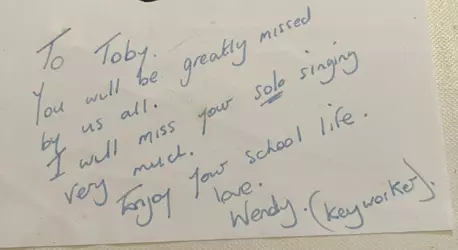 To Toby.
You will be greatly missed
by us all.
I will miss your solo singing
very much.
Enjoy your school life.
love.
Wendy. (keyworker).